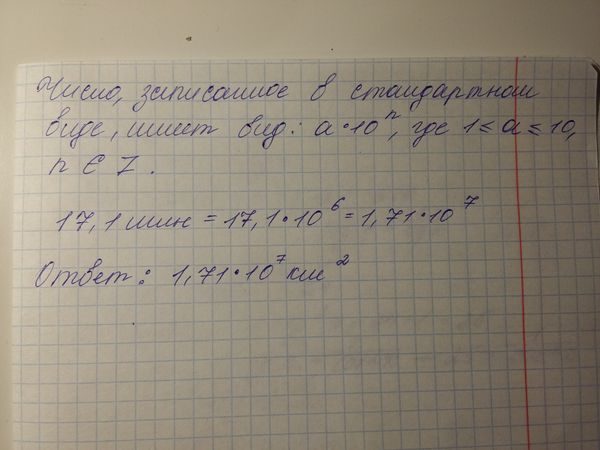 Число, записанное в стандартном
виде, имеет вид: a·10ⁿ, где 1≤a≤10,
n ∈ Z.
17,1 млн = 17,1·10⁶ = 1,71·10⁷
Ответ: 1,71·10⁷ км²